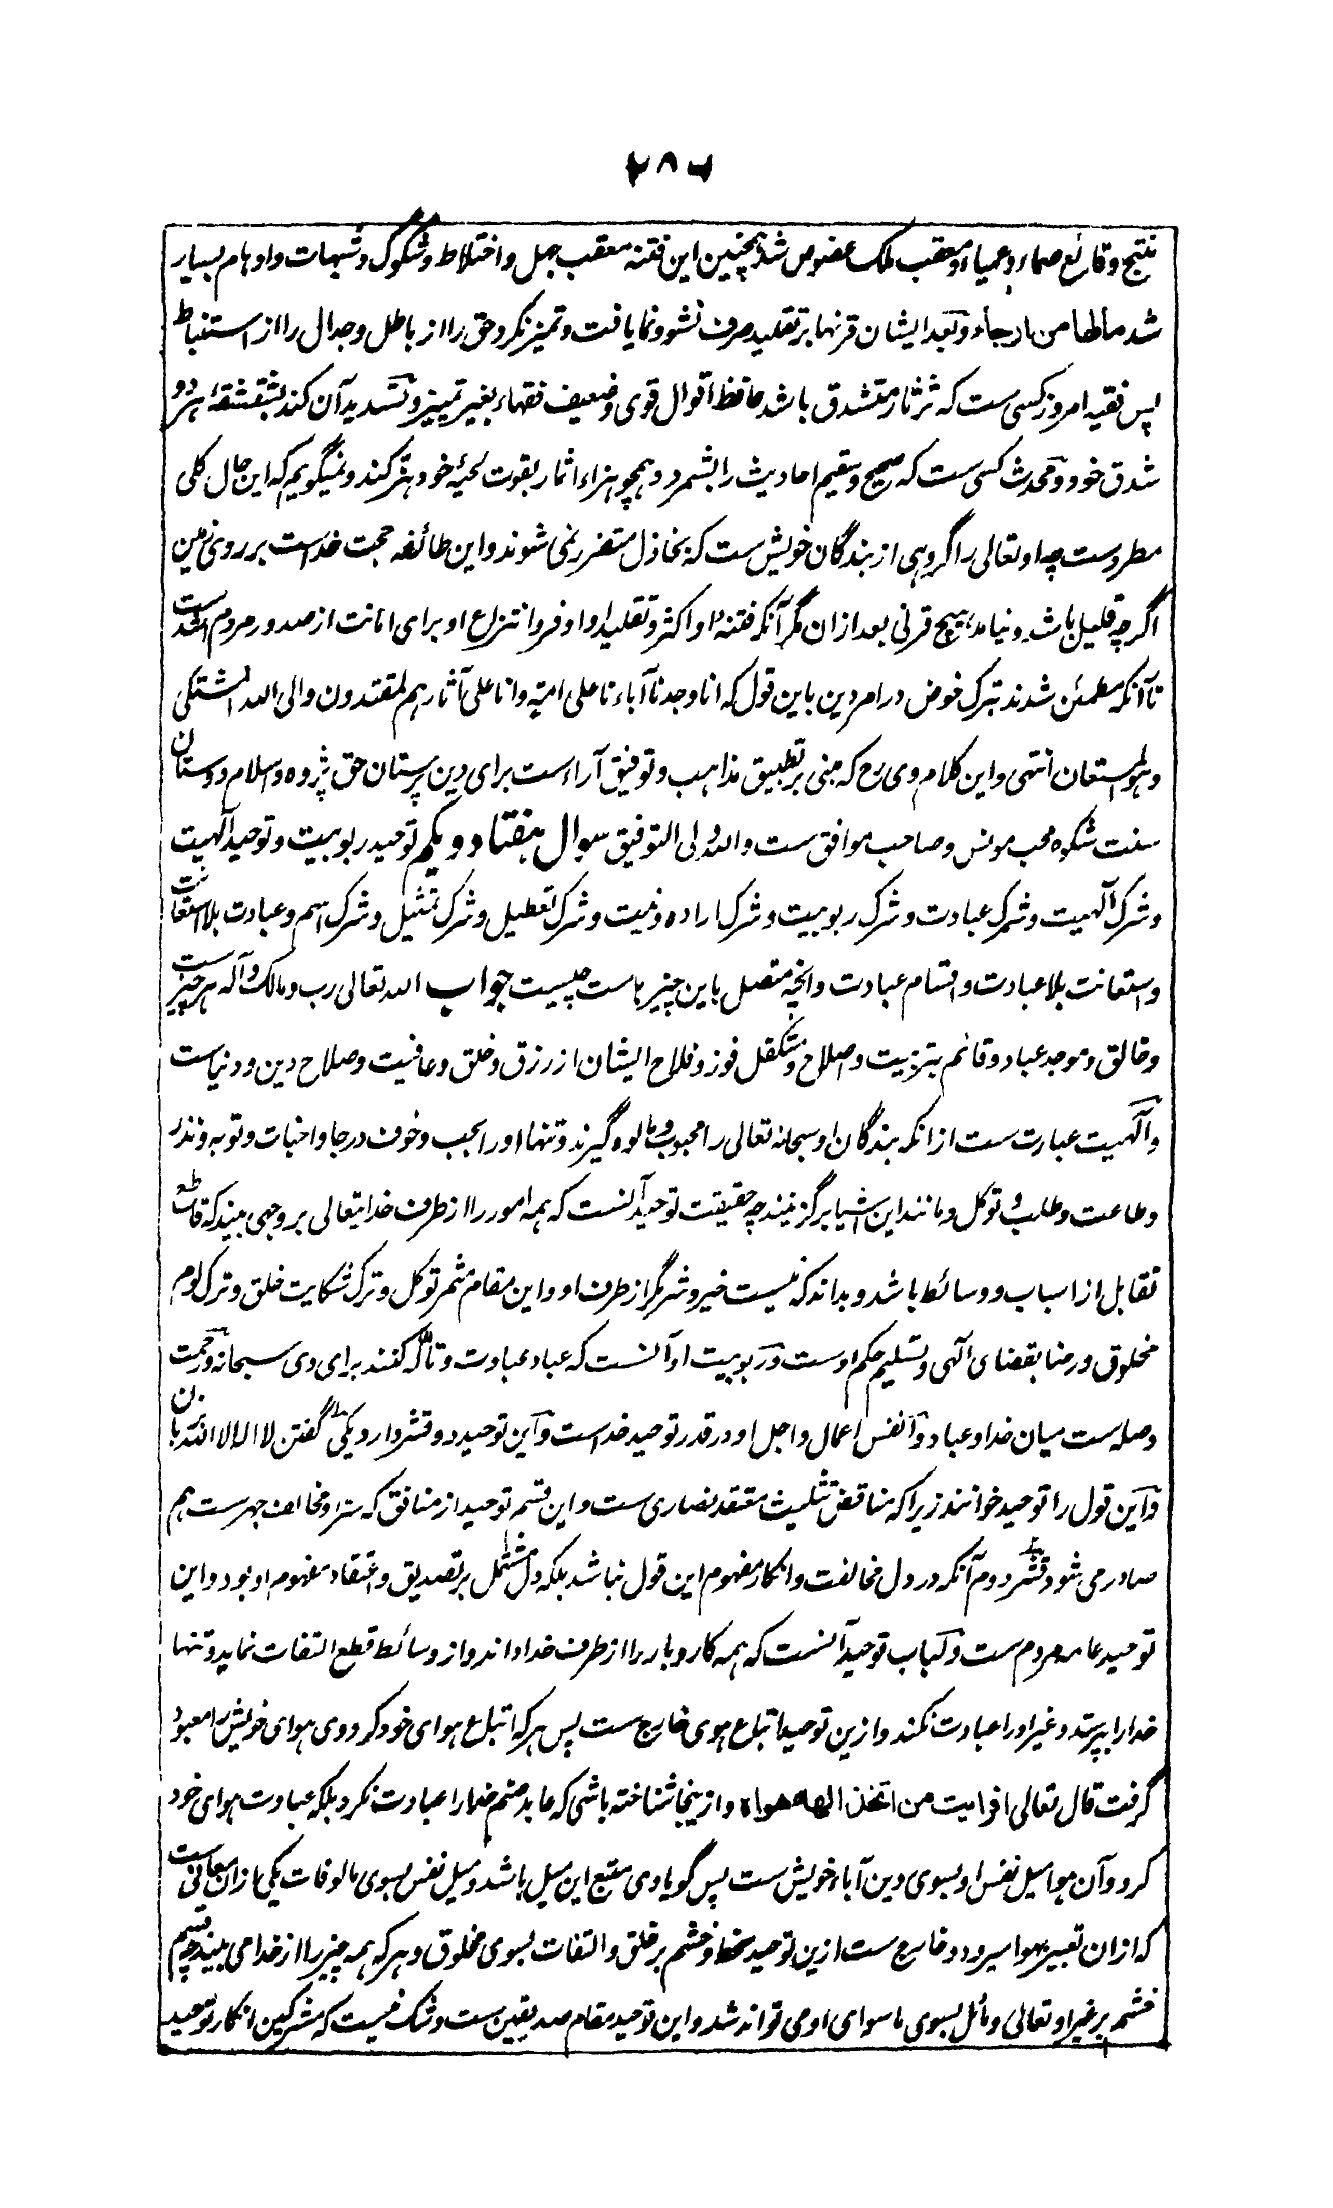 ۲۸۶
نتیج وقائع صماء و عمیاء و معقب ملک عضوض شد همچنین این فتنه معقب جهل و اختلاط و شکوک و شبهات و اوهام بسیار
شد مالها من ارجاء و بعد ایشان قرنها بر تقلید صرف نشو و نما یافت و تمیز نکرد حق را از باطل و جدال را از استنباط
پس فقیه امروز کسی ست که ثرثار متشدق باشد حافظ اقوال قوی و ضعیف فقهاء بغیر تمییز و تسدید آن کند بشقشقۀ هر دو
شدق خود و محدث کسی ست که صحیح و سقیم احادیث را بشمرد و همچو هزاء اثمار بقوت لحیۀ خود هتر کند و نمیگویم که این حال کلی
مطردست چه او تعالی را گروهی از بندگان خویش ست که بخاذل متضرر نمی شوند و این طائفه حجت خداست بر روی زمین
اگرچه قلیل باشد و نیامد هیچ قرنی بعد ازان مگر آنکه فتنۀ او اکثر و تقلید او اوفر و انتزاع او برای امانت از صدور مردم اشد ست
تا آنکه مطمئن شدند بترک خوض در امر دین باین قول که انا وجدنا آباءنا علی امة وانا علی آثارهم لمقتدون والی الله المشتکی
وهو المستعان انتهی و این کلام وی رح که مبنی بر تطبیق مذاهب و توفیق آراء ست برای دین پرستان حق پژوه و اسلام دوستان
سنت شکوه محب مونس و صاحب موافق ست والله ولی التوفیق سوال هفتاد و یکم توحید ربوبیت و توحید آلهیت
و شرک آلهیت و شرک عبادت و شرک ربوبیت و شرک اراده و نیت و شرک تعطیل و شرک تمثیل و شرک اسم و عبادت بلا استعانت
و استعانت بلا عبادت و اقسام عبادت و انچه متصل باین چیزهاست چیست جواب الله تعالی رب و مالک و آله هر چیزست
و خالق و موجد عباد و قائم بتربیت و اصلاح و متکفل فوز و فلاح ایشان از رزق و خلق و عافیت و صلاح دین و دنیاست
و آلهیت عبارت ست از انکه بندگان او سبحانه تعالی را محبوب و مالوه گیرند و تنها او را بحب و خوف و رجا و اخبات و توبه و نذر
و طاعت و طلب و توکل و مانند این اشیا برگزینند چه حقیقت توحید آنست که همه امور را از طرف خدایتعالی بر وجهی بیند که قاطع
تقابل از اسباب و وسائط باشد و بداند که نیست خیر و شر مگر از طرف او و این مقام مثمر توکل و ترک شکایت خلق و ترک لوم
مخلوق و رضا بقضای آلهی و تسلیم حکم اوست و ربوبیت او آنست که عباد عبادت و تاله کنند برای وی سبحانه و رحمت
وصله ست میان خدا و عباد و انفس اعمال و اجل او در قدر توحید خداست و این توحید دو قشر دارد یکی گفتن لا اله الا الله بزبان
و این قول را توحید خوانند زیرا که مناقض تثلیث معتقد نصاری ست و این قسم توحید از منافق که سرا و مخالف جهرست هم
صادر می شود و قشر دوم آنکه در دل مخالفت و انکار مفهوم این قول نباشد بلکه دل مشتمل بر تصدیق و اعتقاد مفهوم او بود و این
توحید عامه مردم ست و لباب توحید آنست که همه کار و بار را از طرف خدا داند و از وسائط قطع التفات نماید و تنها
خدا را بپرستد و غیر او را عبادت نکند و ازین توحید اتباع هوی خارج ست پس هر که اتباع هوای خود کرد وی هوای خویش را معبود
گرفت قال تعالی افرأیت من اتخذ الهه هواه و ازینجا شناخته باشی که عابد صنم صنم را عبادت نکرد بلکه عبادت هوای خود
کرد و آن هوا میل نفس او بسوی دین آباء خویش ست پس گویا وی متبع این میل باشد و میل نفس بسوی مالوفات یکی ازان معانی ست
که ازان تعبیر بهوا میرود و خارج ست ازین توحید سخط و خشم بر خلق و التفات بسوی مخلوق و هر که همه چیز را از خدا می بیند چه قسم
خشم بر غیر او تعالی و مائل بسوی ماسوای او می تواند شد و این توحید مقام صدیقین ست و شک نیست که مشرکین انکار توحید